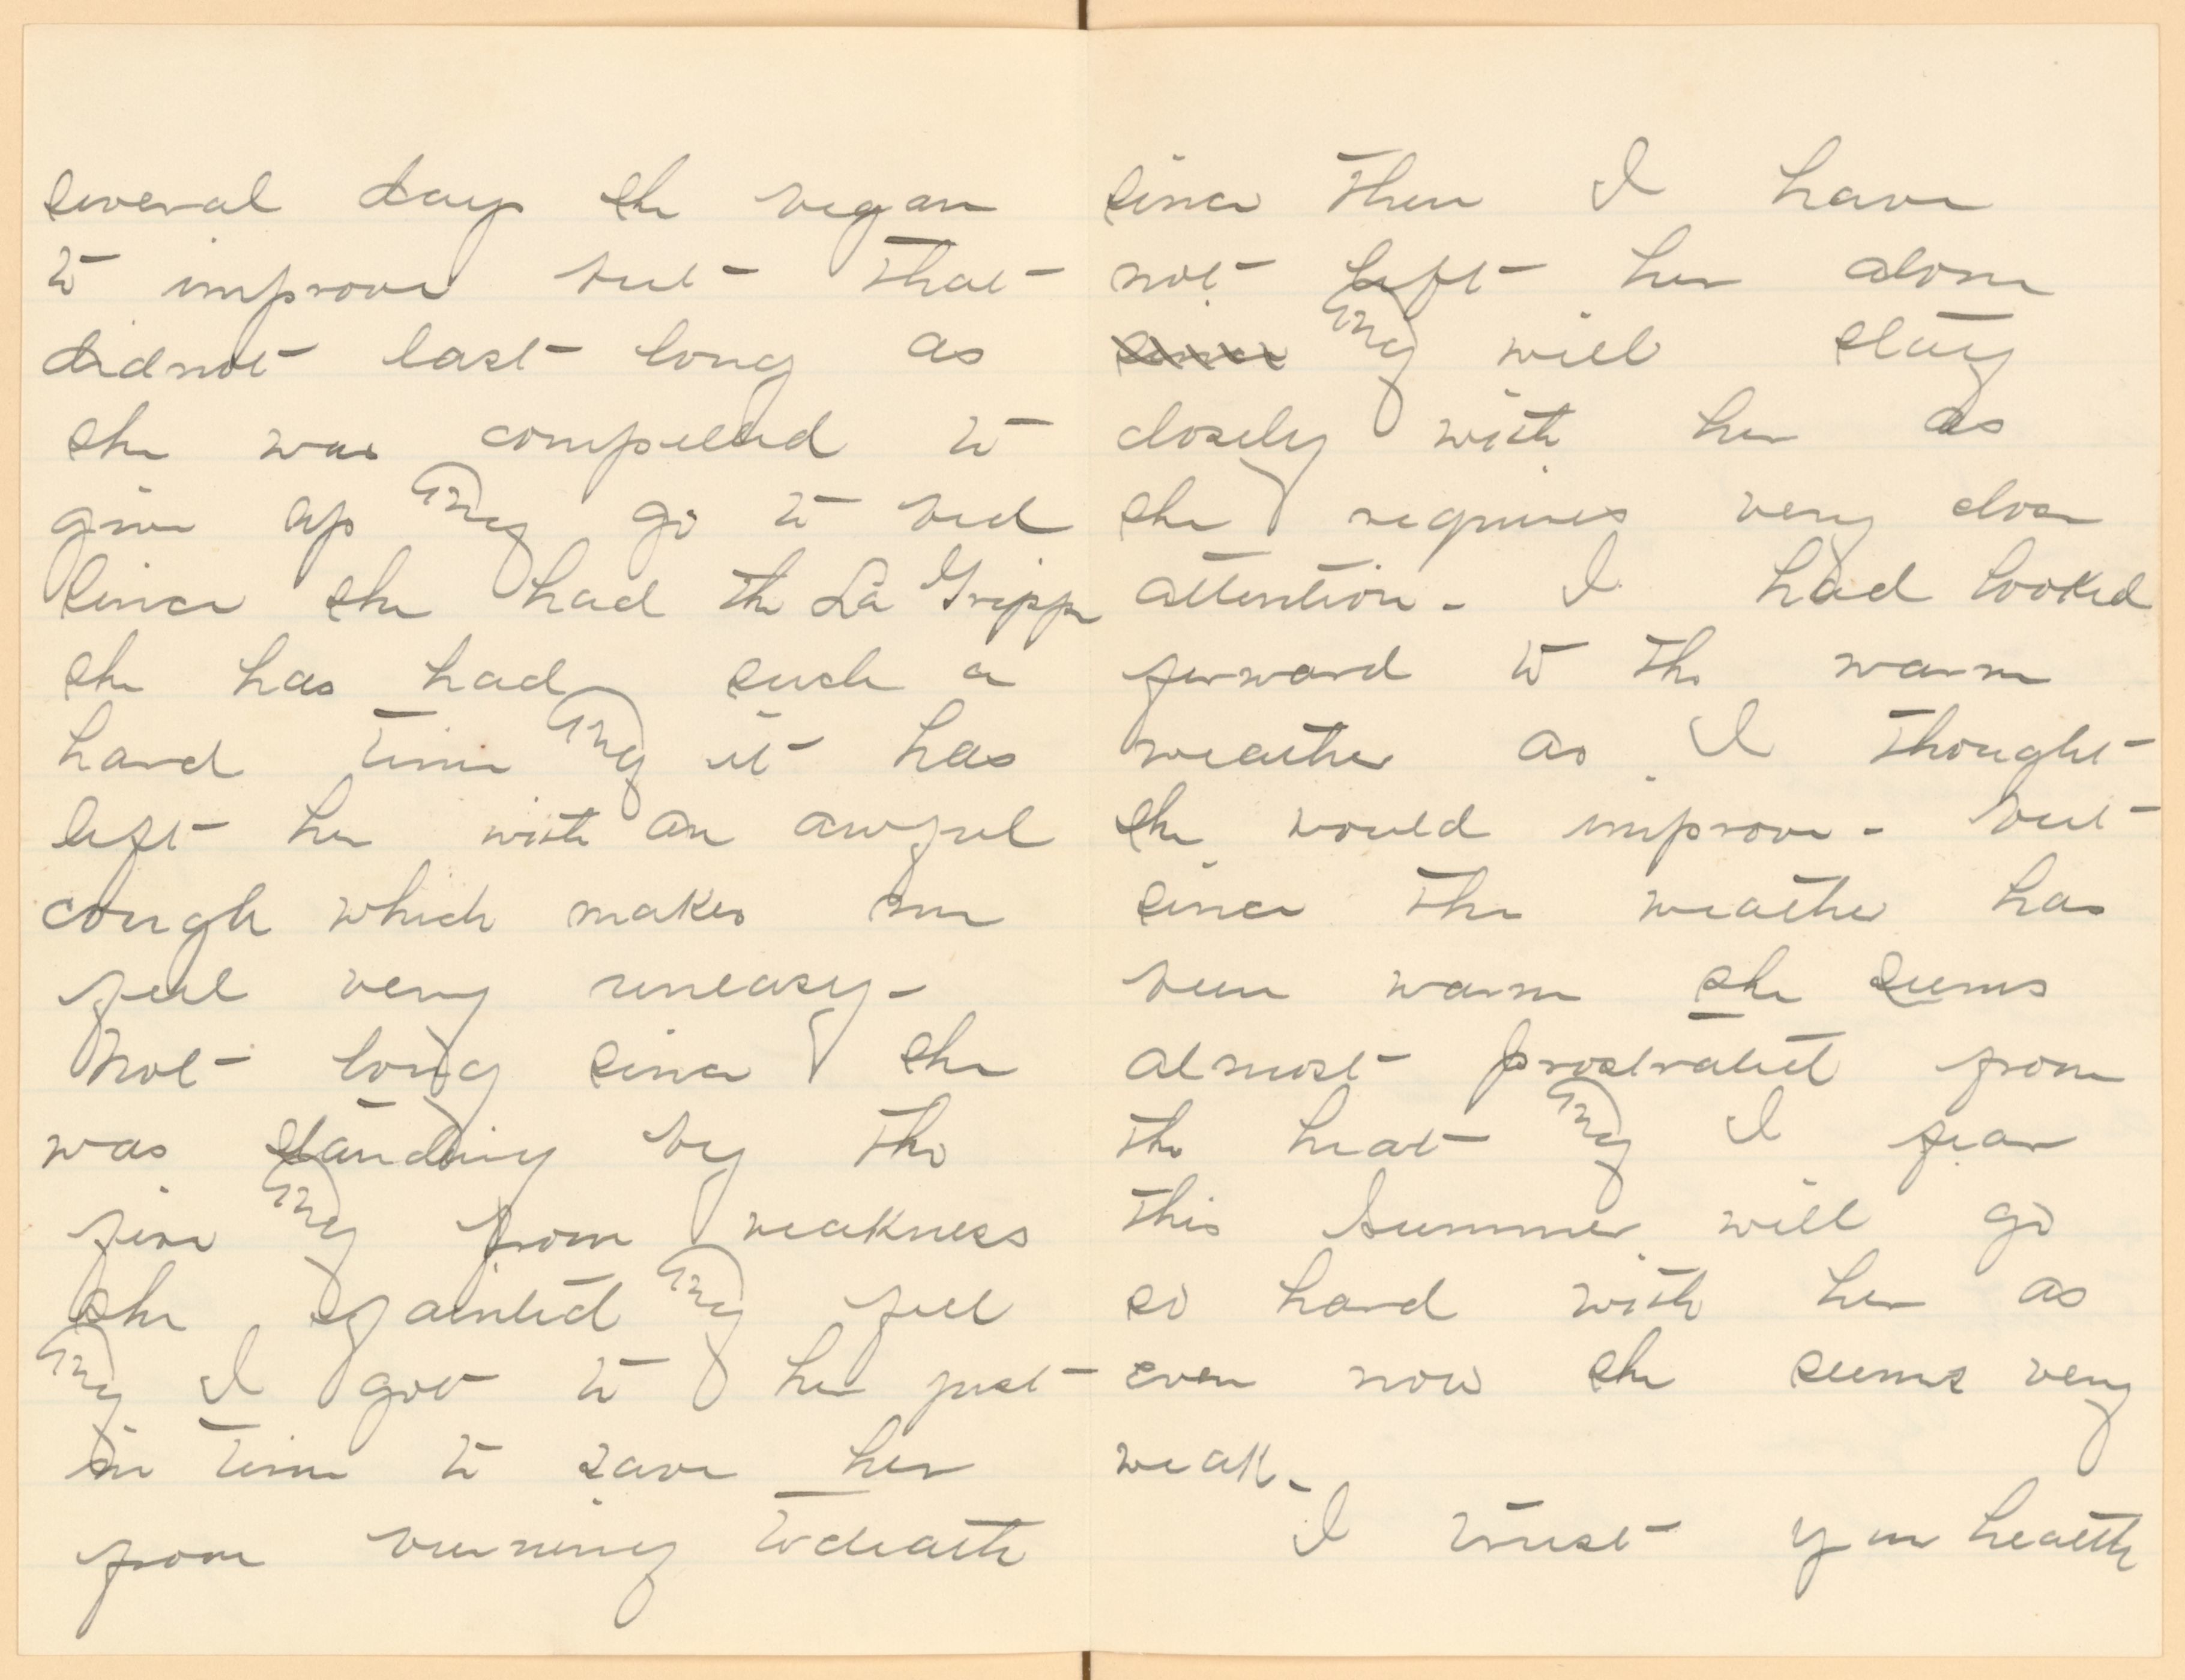 several days she began
to improve but that
didnot last long as
she was compelled to
give up and go to bed
Since she had the La Grippe
she has had such a
hard time and it has
left her with an awful
cough which makes me
feel very uneasy -
Not long since she
was standing by the
fire and from weakness
she fainted and fell
and I got to her just
in time to save her
from burning to death
since then I have
not left her alone
since and will stay
closely with her as
she requires very close
attention - I had looked
forward to the warm
weather as I thought
she would improve - but
since the weather has
been warm she seems
almost prostrated from
the heat and I fear
this Summer will go
so hard with her as
even now she seems very
weak -
I trust your health